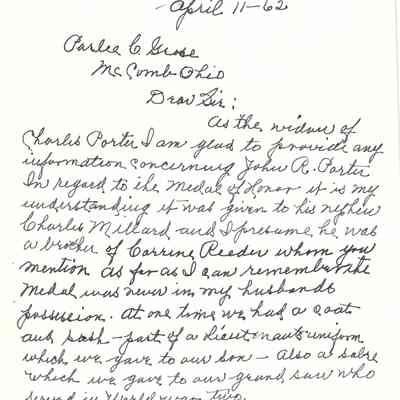 April 11-62
Parlee C Grose
McComb Ohio
Dear Sir:
As the widow of
Charles Porter I am glad to provide any
information concerning John R. Porter
In regard to the Medal of Honor it is my
understanding it was given to his nephew
Charles Millard and I presume he was
a brother of Corrine Reeder whom you
mention as far as I can remember the
Medal was never in my husbands
possession. At one time we had a coat
and sash - part of a Lieutenants uniform
which we gave to our son - Also a sabre
which we gave to our grand son who
served in World war two.